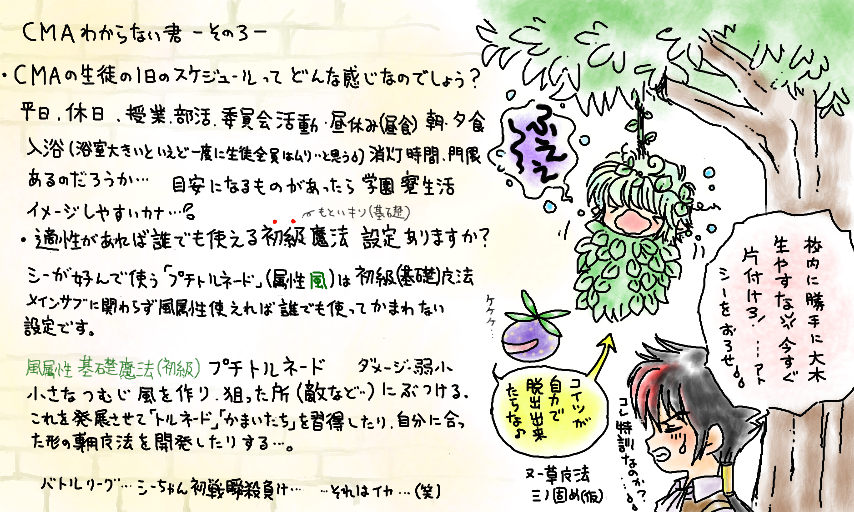 CMAわからない君 -その3-
・CMAの生徒の1日のスケジュールって どんな感じなのでしょう?
平日、休日、授業、部活、委員会活動・昼休み(昼食) 朝・夕食
入浴(浴室大きいといえど一度に生徒全員はムリ…と思う) 消灯時間、門限
あるのだろうか… 目安になるものがあったら 学園 寮生活
イメージしやすいカナ…?
もといキソ(基礎)
・適性があれば誰でも使える初級魔法 設定ありますか?
シーが好んで使う「プチトルネード」(属性風)は初級(基礎)魔法
メインサブに関わらず風属性使えれば誰でも使ってかまわない
設定です。
風属性 基礎魔法(初級) プチトルネード ダメージ・弱小
小さなつむじ風を作り、狙った所(敵など…)にぶつける。
これを発展させて「トルネード」「かまいたち」を習得したり、自分に合っ
た形の専用魔法を開発したりする…。
バトルリーグ… シーちゃん初戦瞬殺負け… …それはイカ…(笑)
ふぇぇ〜〜
ケケケ…
コイツが
自力で
脱出出来
たらな♪
ヌー草魔法
ミノ固め(仮)
校内に勝手に大木
生やすな 今すぐ
片付けろ! …アト
シーをおろせ
コレ特訓なのか?…